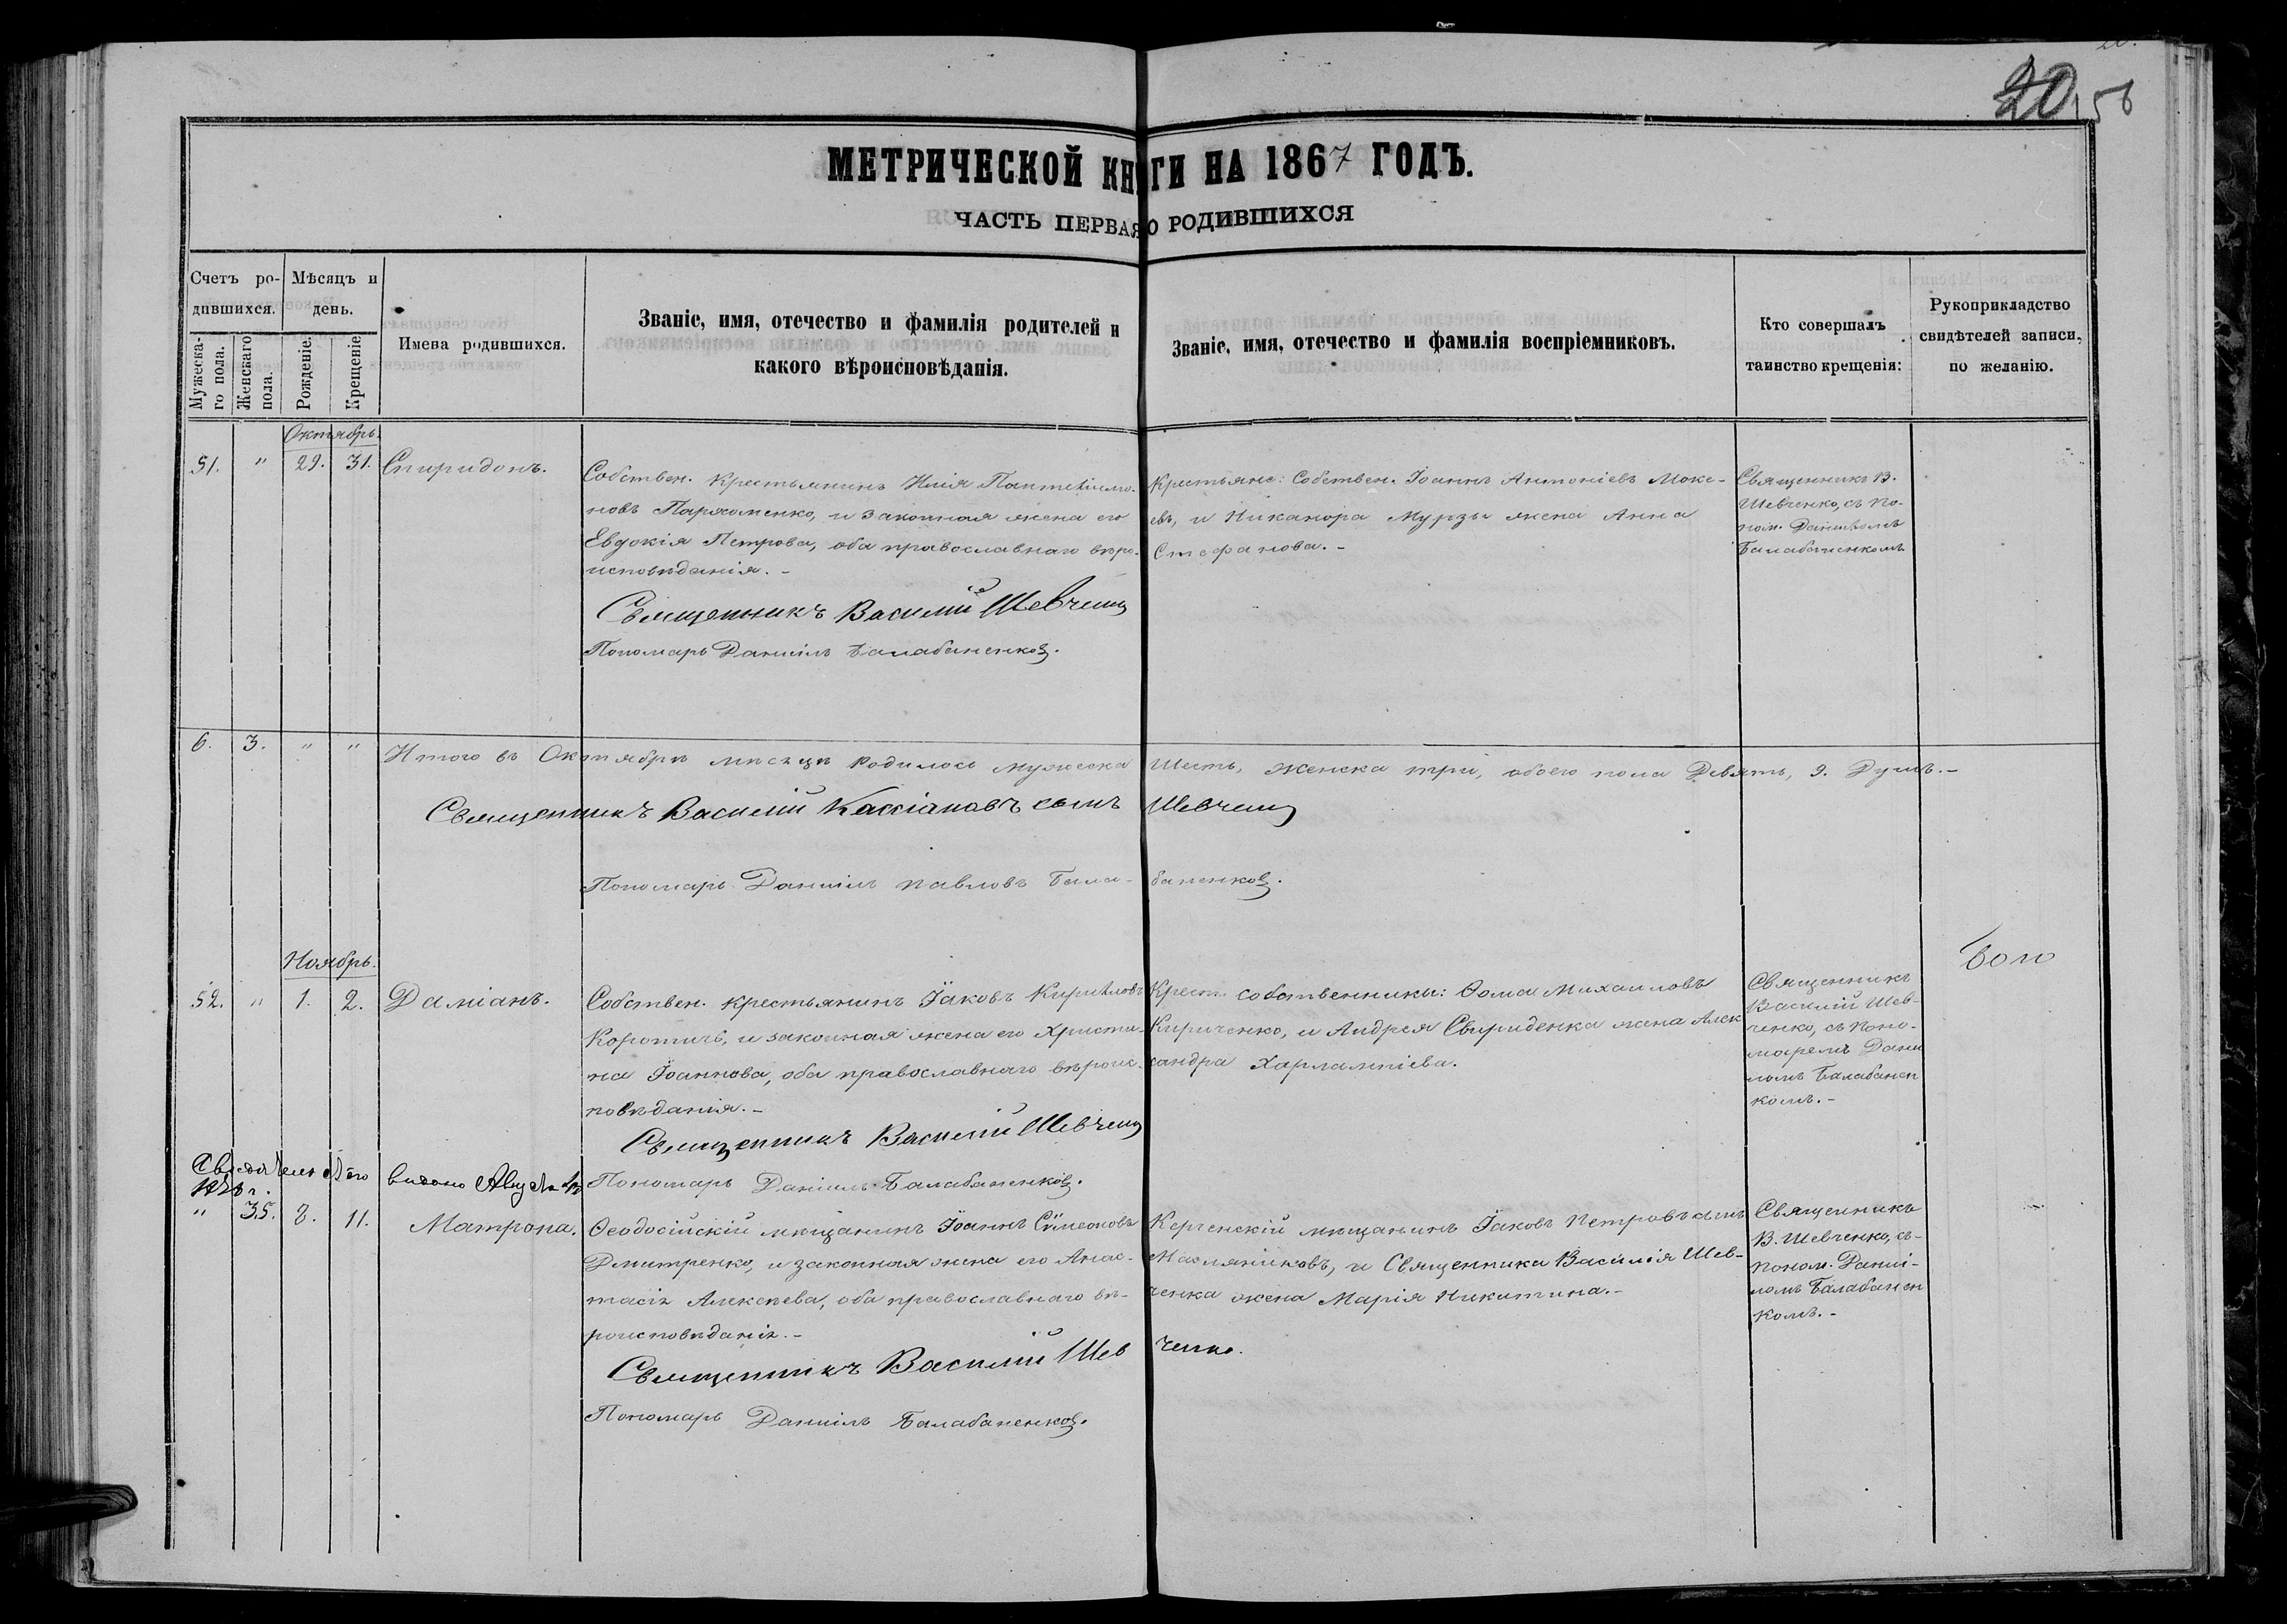 20
156
МЕТРИЧЕСКОЙ КНИГИ НА 1867 ГОДЪ.
ЧАСТЬ ПЕРВАЯ О РОДИВШИХСЯ
Счетъ ро-
дившихся.
Мужеска-
го пола.
Женскаго
пола.
Мѣсяцъ и
день.
Рожденіе.
Крещеніе.
Имена родившихся.
Званіе, имя, отечество и фамилія родителей и
какого вѣроисповѣданія.
Званіе, имя, отечество и фамилія воспріемниковъ.
Кто совершалъ
таинство крещенія:
Рукоприкладство
свидѣтелей записи,
по желанію.
Октябрь.
51. " 29. 31. Спиридонъ.
Собствен. Крестьянинъ Илія Пантелѣимо-
новъ Пархоменко, и законная жена его
Евдокія Петрова, оба православнаго вѣро-
исповѣданія. -
Священникъ Василій Шевченко
Пономарь Даніилъ Балабаненковъ.
Крестьяне: Собствен. Іоаннъ Антоніевъ Моке-
евъ, и Никанора Мурзы жена Анна
Стефанова. -
Священникъ В.
Шевченко, съ по-
ном. Даніиломъ
Балабаненкомъ
6. 3. " " Итого въ Октябрѣ мѣсяцѣ родилось мужеска Шесть, женска три, обоего пола Девять, 9. Душъ. -
Священникъ Василій Кассіановъ сынъ Шевченко
Пономарь Даніилъ Павловъ Бала-баненковъ.
Ноябрь.
52. " 1. 2. Даміанъ.
Собствен. крестьянинъ Іаковъ Кириловъ
Коротичь, и законная жена его Христи-
на Іоаннова, оба православнаго вѣроис-
повѣданія. -
Священникъ Василій Шевченко
Пономарь Даніилъ Балабаненковъ.
Крест. собственники: Ѳома Михаиловъ
Кириченко, и Андрея Свириденка жена Алек
сандра Харлампіева.
Священникъ
Василій Шев-
ченко, съ поно-
маремъ Дани
ломъ Балабанен
комъ. -
видано
" 35. 8. 11. Матрона.
Ѳеодосійскій мѣщанинъ Іоаннъ Сѵмеоновъ
Дмитренко, и законная жена его Анас-
тасія Алексѣева, оба православнаго вѣ-
роисповѣданія. -
Священникъ Василій Шевченко.
Пономарь Даніилъ Балабаненковъ.
Керченскій мѣщанинъ Іаковъ Петровъ сынъ
Масляниковъ, и Священника Василія Шев-
ченка жена Марія Никитина. -
Священникъ
В. Шевченко, съ-
поном. Даніи-
ломъ Балабанен
комъ. -